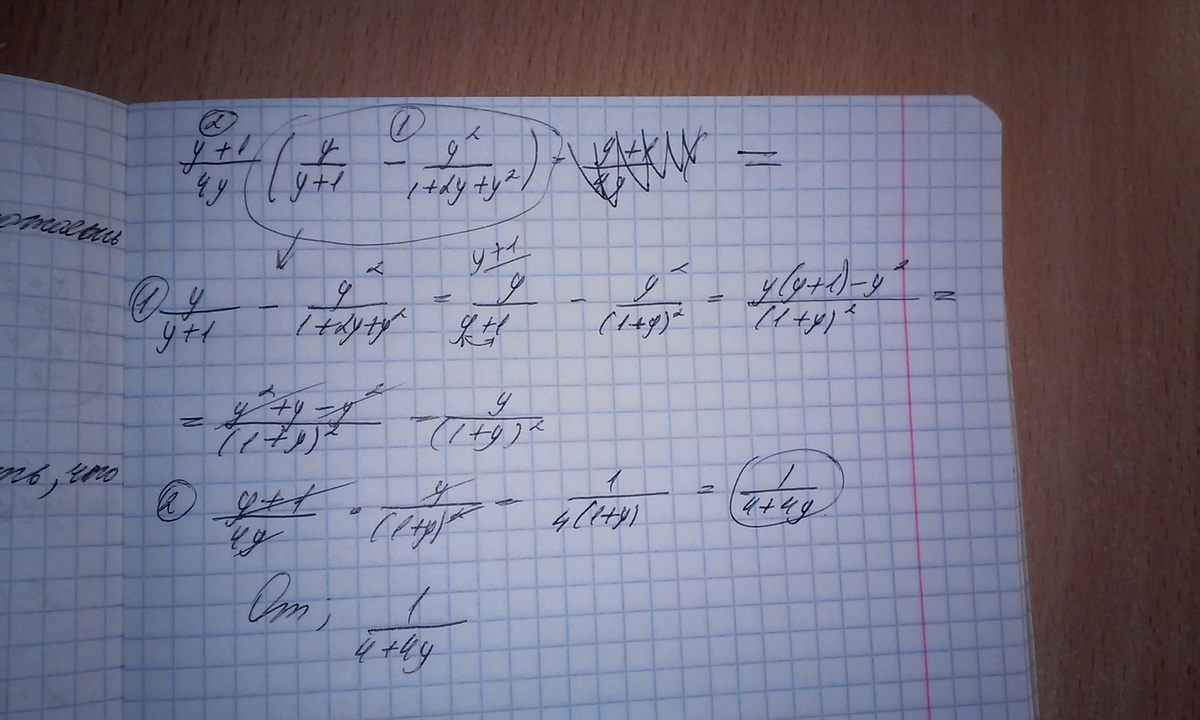 ② ①
(y+1)/(4y) (y/(y+1) − y²/(1+2y+y²)) · =
① y/(y+1) − y²/(1+2y+y²) = y+1/ y/(y+1) − y²/(1+y)² = (y(y+1)−y²)/(1+y)² =
= (y²+y−y²)/(1+y)² = y/(1+y)²
② (y+1)/(4y) · y/(1+y)² = 1/(4(1+y)) = 1/(4+4y)
От; 1/(4+4y)
ть, что